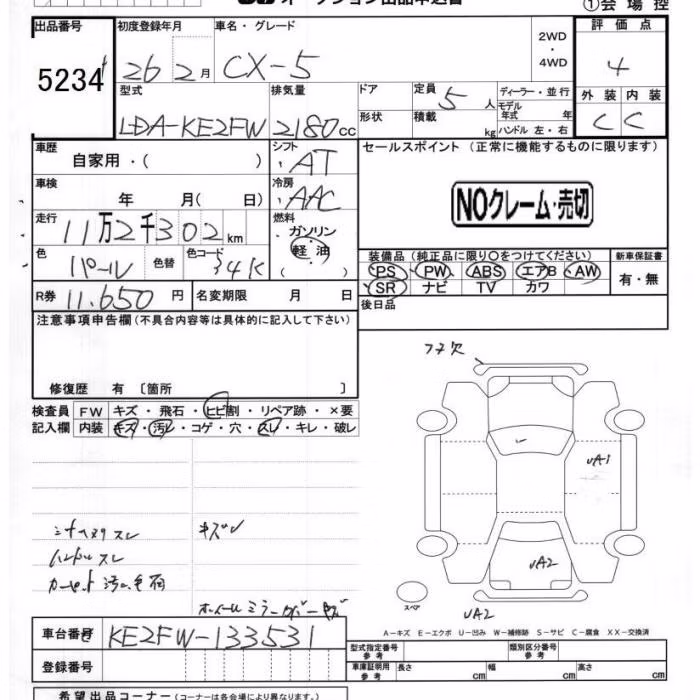 ①会場控
出品番号 初度登録年月 車名・グレード 2WD・4WD 評価点
5234 26 2月 CX-5 4
型式 排気量 ドア 定員 5人 ディーラー・並行 外装 内装
LDA-KE2FW 2180cc 形状 積載 kg モデル年式 年 ハンドル 左・右 C C
車歴 シフト セールスポイント (正常に機能するものに限ります)
自家用・( ) AT
車検 年 月( 日) 冷房 AAC
NOクレーム・売切
走行 11万2千302km 燃料 ガソリン・軽油( )
色 パール 色替 色コード 34K
装備品 (純正品に限り○をつけてください) 新車保証書
PS PW ABS エアB AW 有・無
SR ナビ TV カワ
R券 11.650円 名変期限 月 日 後日品
注意事項申告欄 (不具合内容等は具体的に記入して下さい)
修復歴 有 〔箇所 〕
検査員 FW キズ・飛石・ヒビ割・リペア跡・×要
記入欄 内装 キズ・汚レ・コゲ・穴・スレ・キレ・破レ
フタ欠
UA1
UA2
スペア
UA2
スレ キズ
ハンドルスレ
A－キズ E－エクボ U－凹み W－補修跡 S－サビ C－腐食 XX－交換済
車台番号 KE2FW-133531 型式指定番号 参考 類別区分番号 参考
登録番号 車庫証明用 参考 長さ cm 幅 cm 高さ cm
希望出品コーナー (コーナーは各会場により異なります。)